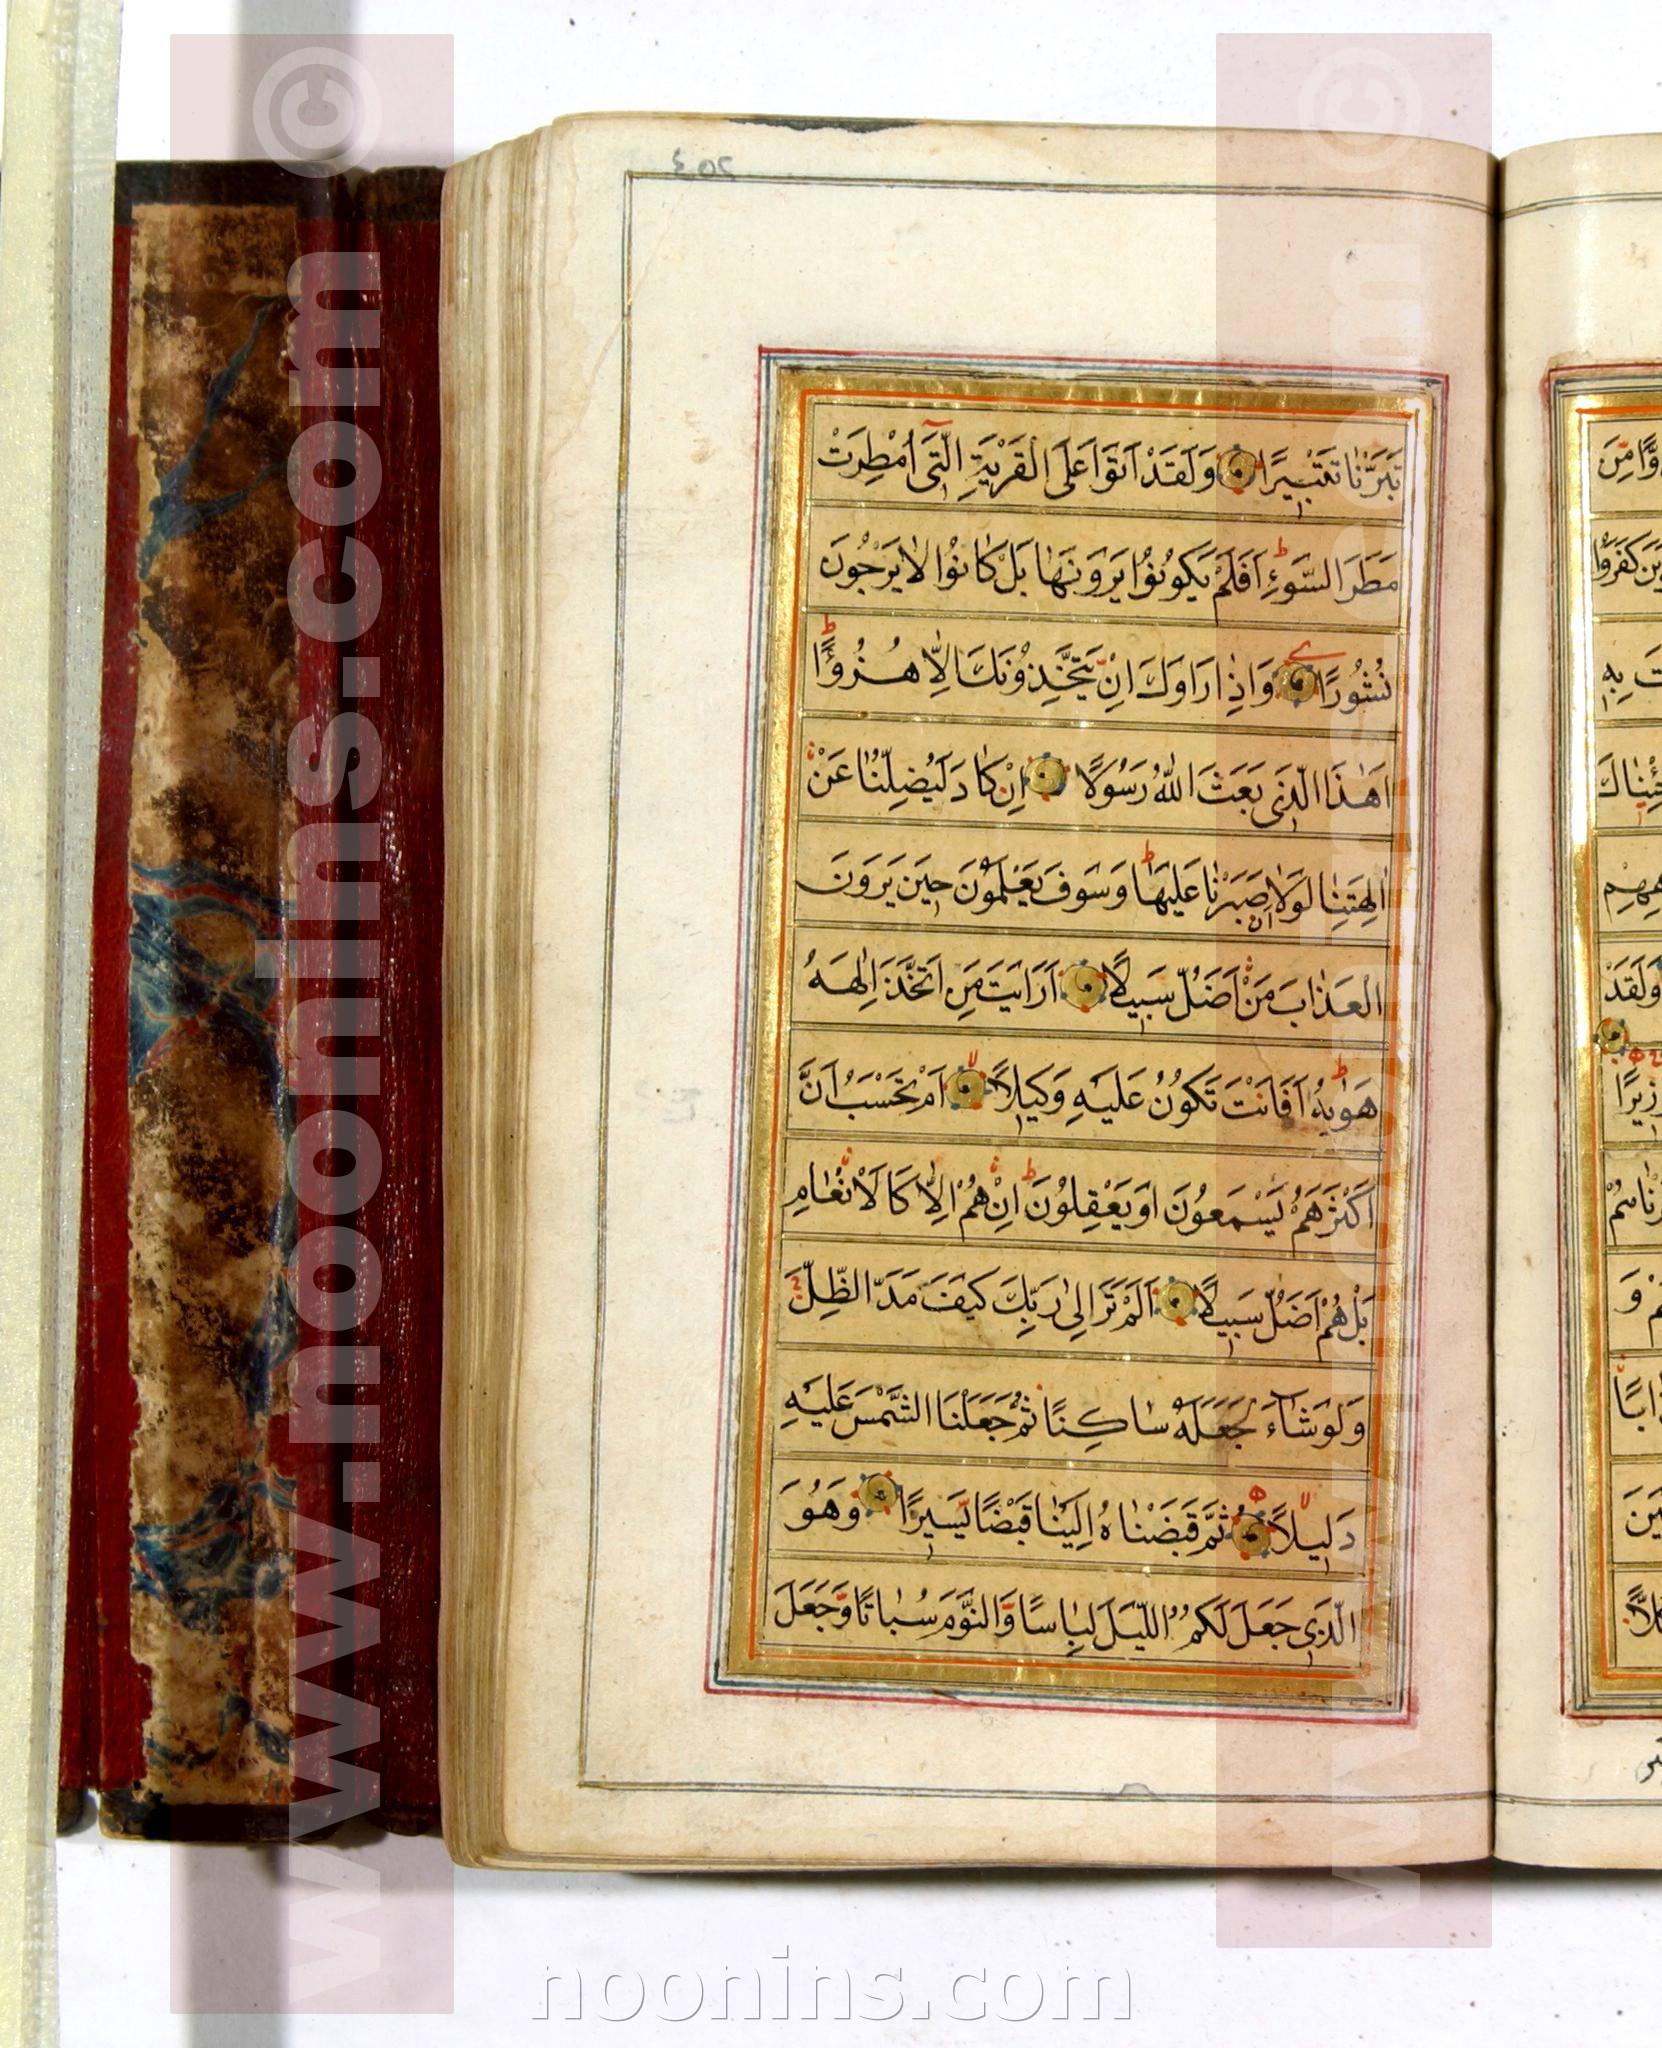 تَبَّرْنَا تَتْبِيرًا وَلَقَدْ اَتَوْا عَلَى الْقَرْيَةِ الَّتِي اُمْطِرَتْ
مَطَرَ السَّوْءِ اَفَلَمْ يَكُونُوا يَرَوْنَهَا بَلْ كَانُوا لَا يَرْجُونَ
نُشُورًا وَاِذَا رَاَوْكَ اِنْ يَتَّخِذُونَكَ اِلَّا هُزُوًا
اَهٰذَا الَّذِي بَعَثَ اللّٰهُ رَسُولًا اِنْ كَادَ لَيُضِلُّنَا عَنْ
اٰلِهَتِنَا لَوْلَا اَنْ صَبَرْنَا عَلَيْهَا وَسَوْفَ يَعْلَمُونَ حِينَ يَرَوْنَ
الْعَذَابَ مَنْ اَضَلُّ سَبِيلًا اَرَاَيْتَ مَنِ اتَّخَذَ اِلٰهَهُ
هَوٰيهُ اَفَاَنْتَ تَكُونُ عَلَيْهِ وَكِيلًا اَمْ تَحْسَبُ اَنَّ
اَكْثَرَهُمْ يَسْمَعُونَ اَوْ يَعْقِلُونَ اِنْ هُمْ اِلَّا كَالْاَنْعَامِ
بَلْ هُمْ اَضَلُّ سَبِيلًا اَلَمْ تَرَ اِلٰى رَبِّكَ كَيْفَ مَدَّ الظِّلَّ
وَلَوْ شَاءَ لَجَعَلَهُ سَاكِنًا ثُمَّ جَعَلْنَا الشَّمْسَ عَلَيْهِ
دَلِيلًا ثُمَّ قَبَضْنَاهُ اِلَيْنَا قَبْضًا يَسِيرًا وَهُوَ
الَّذِي جَعَلَ لَكُمُ اللَّيْلَ لِبَاسًا وَالنَّوْمَ سُبَاتًا وَجَعَلَ
وَلَقَدْ
www.noonins.com ©
noonins.com